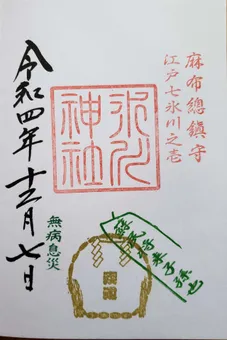 麻布總鎮守
江戸七氷川之壱
氷川
神社
令和四年十二月七日
無病息災